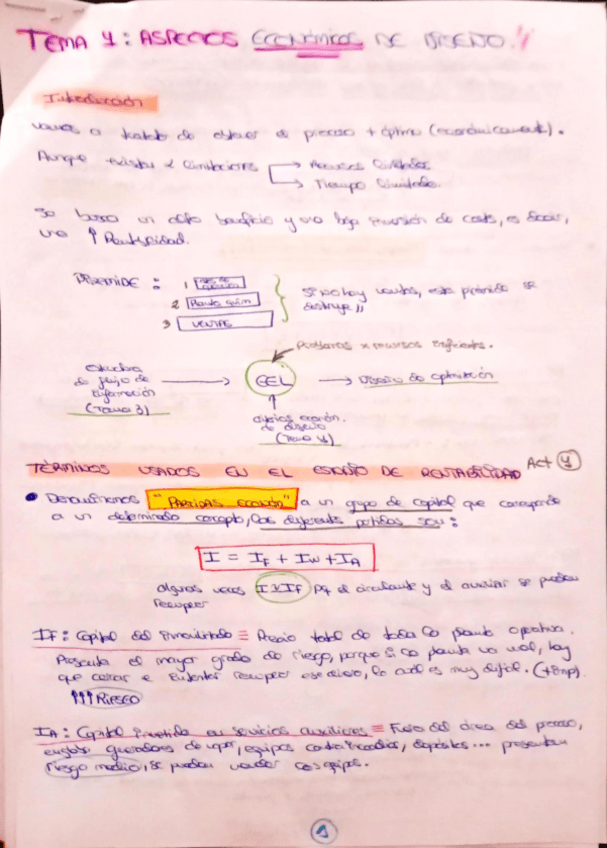 TEMA 4: ASPECTOS ECONÓMICOS DE DISEÑO.
Introducción
vamos a tratar de obtener el proceso + óptimo (económicamente).
Aunque existen 2 limitaciones → Recursos limitados
→ Tiempo limitado.
Se busca un alto beneficio y una baja inversión de costo, es decir,
una ↑ Rentabilidad.
PIRÁMIDE :
1
2 Planta quím
3 VENTAS
Si no hay ventas, esta pirámide se
destruye,,
Problemas x recursos insuficients.
estructura
de flujo de
información
(Tema 3)
→ EEL → Diseño de optimización
criterios económ.
de diseño
(Tema 4)
TÉRMINOS USADOS EN EL ESTUDIO DE RENTABILIDAD Act 4
• Denominamos "PARTIDAS ECONÓM" a un grupo de capital que corresponde
a un determinado concepto, las diferentes partidas son :
I = IF + IW + IA
algunas veces I ≈ IF pq el circulante y el auxiliar se pueden
recuperar
IF : Capital del inmovilizado ≡ Precio total de toda la planta operativa.
Presenta el mayor grado de riesgo, porque si la planta va mal, hay
que cerrar e intentar recuperar ese dinero, lo cual es muy difícil. (+ imp).
↑↑↑ Riesgo
IA : Capital invertido en servicios auxiliares ≡ Fuera del área del proceso,
engloba generadores de vapor, equipos contra incendios, depósitos... presentan
riesgo medio, se pueden vender los equipos.
1